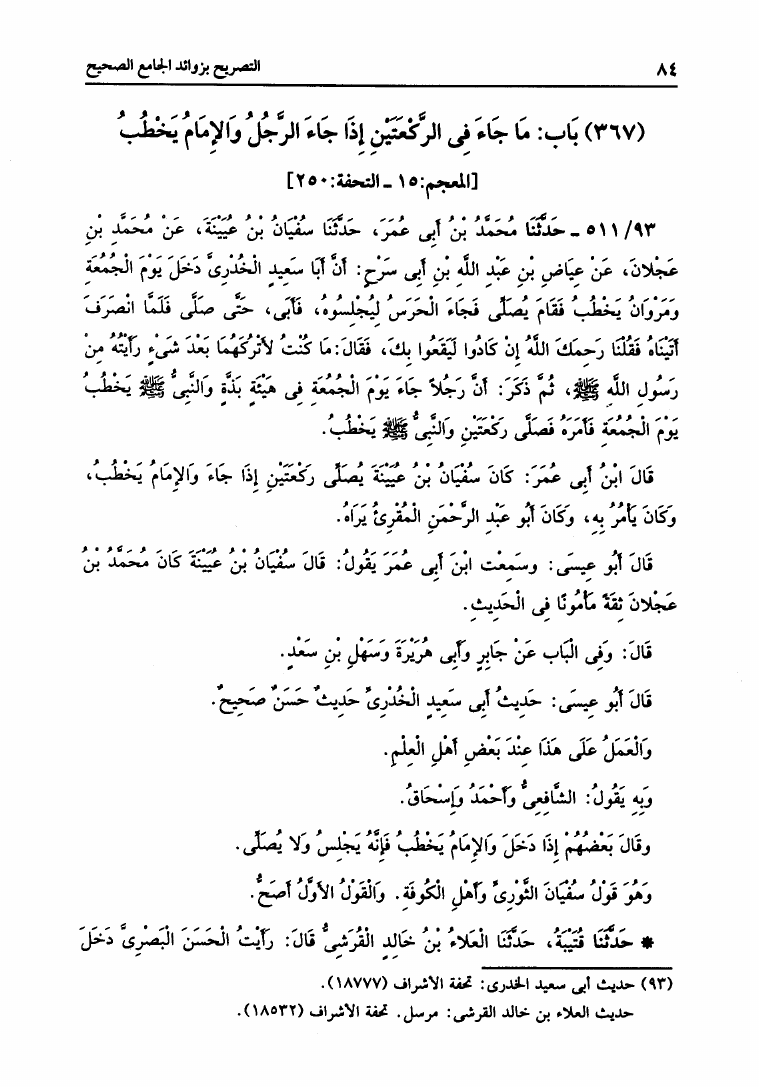 ٨٤ التصريح بزوائد الجامع الصحيح
(٣٦٧) بَاب: مَا جَاءَ فِى الرَّكْعَتَيْنِ إِذَا جَاءَ الرَّجُلُ وَالإِمَامُ يَخْطُبُ
[المعجم:١٥ - التحفة:٢٥٠]
٥١١/٩٣ - حَدَّثَنَا مُحَمَّدُ بْنُ أَبِى عُمَرَ، حَدَّثَنَا سُفْيَانُ بْنُ عُيَيْنَةَ، عَنْ مُحَمَّدِ بْنِ
عَجْلانَ، عَنْ عِيَاضِ بْنِ عَبْدِ اللَّهِ بْنِ أَبِى سَرْحٍ: أَنَّ أَبَا سَعِيدٍ الْخُدْرِىَّ دَخَلَ يَوْمَ الْجُمُعَةِ
وَمَرْوَانُ يَخْطُبُ فَقَامَ يُصَلِّى فَجَاءَ الْحَرَسُ لِيُجْلِسُوهُ، فَأَبَى، حَتَّى صَلَّى فَلَمَّا انْصَرَفَ
أَتَيْنَاهُ فَقُلْنَا رَحِمَكَ اللَّهُ إِنْ كَادُوا لَيَقَعُوا بِكَ، فَقَالَ: مَا كُنْتُ لأَتْرُكَهُمَا بَعْدَ شَىْءٍ رَأَيْتُهُ مِنْ
رَسُولِ اللَّهِ ﷺ، ثُمَّ ذَكَرَ: أَنَّ رَجُلاً جَاءَ يَوْمَ الْجُمُعَةِ فِى هَيْئَةٍ بَذَّةٍ وَالنَّبِىُّ ﷺ يَخْطُبُ
يَوْمَ الْجُمُعَةِ فَأَمَرَهُ فَصَلَّى رَكْعَتَيْنِ وَالنَّبِىُّ ﷺ يَخْطُبُ.
قَالَ ابْنُ أَبِى عُمَرَ: كَانَ سُفْيَانُ بْنُ عُيَيْنَةَ يُصَلِّى رَكْعَتَيْنِ إِذَا جَاءَ وَالإِمَامُ يَخْطُبُ،
وَكَانَ يَأْمُرُ بِهِ، وَكَانَ أَبُو عَبْدِ الرَّحْمَنِ الْمُقْرِئُ يَرَاهُ.
قَالَ أَبُو عِيسَى: وسَمِعْت ابْنَ أَبِى عُمَرَ يَقُولُ: قَالَ سُفْيَانُ بْنُ عُيَيْنَةَ كَانَ مُحَمَّدُ بْنُ
عَجْلانَ ثِقَةً مَأْمُونًا فِى الْحَدِيثِ.
قَالَ: وَفِى الْبَاب عَنْ جَابِرٍ وَأَبِى هُرَيْرَةَ وَسَهْلِ بْنِ سَعْدٍ.
قَالَ أَبُو عِيسَى: حَدِيثُ أَبِى سَعِيدٍ الْخُدْرِىِّ حَدِيثٌ حَسَنٌ صَحِيحٌ.
وَالْعَمَلُ عَلَى هَذَا عِنْدَ بَعْضِ أَهْلِ الْعِلْمِ.
وَبِهِ يَقُولُ: الشَّافِعِىُّ وَأَحْمَدُ وَإِسْحَاقُ.
وقَالَ بَعْضُهُمْ إِذَا دَخَلَ وَالإِمَامُ يَخْطُبُ فَإِنَّهُ يَجْلِسُ وَلا يُصَلِّى.
وَهُوَ قَوْلُ سُفْيَانَ الثَّوْرِىِّ وَأَهْلِ الْكُوفَةِ. وَالْقَوْلُ الأَوَّلُ أَصَحُّ.
* حَدَّثَنَا قُتَيْبَةُ، حَدَّثَنَا الْعَلاءُ بْنُ خَالِدٍ الْقُرَشِىُّ قَالَ: رَأَيْتُ الْحَسَنَ الْبَصْرِىَّ دَخَلَ
(٩٣) حديث أبى سعيد الخدرى: تحفة الأشراف (١٨٧٧٧).
حديث العلاء بن خالد القرشى: مرسل. تحفة الأشراف (١٨٥٣٢).